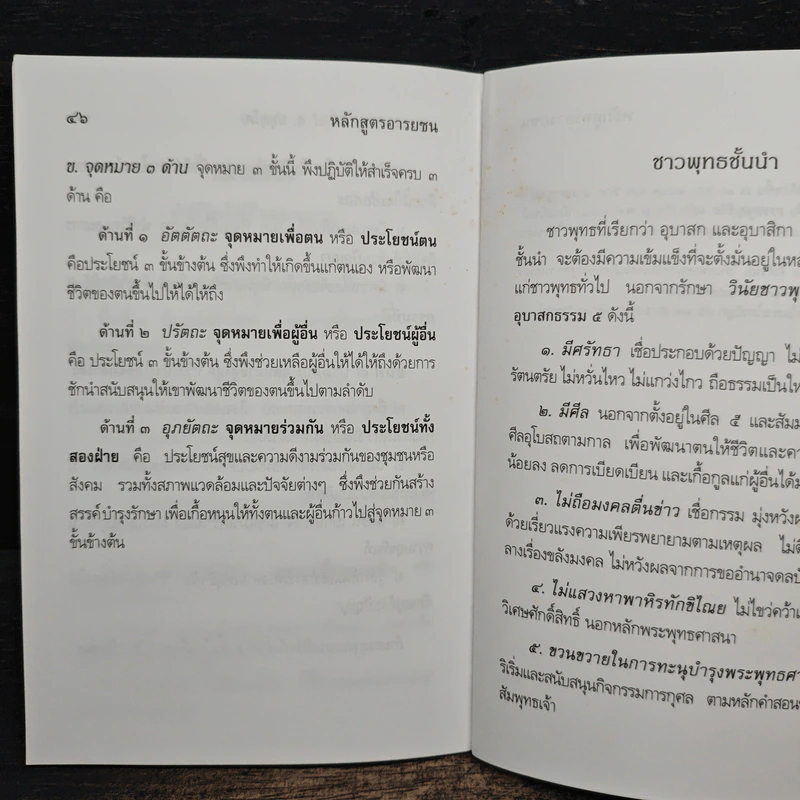 ๔๖ หลักสูตรอารยชน
ข. จุดหมาย ๓ ด้าน จุดหมาย ๓ ขั้นนี้ พึงปฏิบัติให้สำเร็จครบ ๓
ด้าน คือ
ด้านที่ ๑ อัตตัตถะ จุดหมายเพื่อตน หรือ ประโยชน์ตน
คือประโยชน์ ๓ ขั้นข้างต้น ซึ่งพึงทำให้เกิดขึ้นแก่ตนเอง หรือพัฒนา
ชีวิตของตนขึ้นไปให้ได้ให้ถึง
ด้านที่ ๒ ปรัตถะ จุดหมายเพื่อผู้อื่น หรือ ประโยชน์ผู้อื่น
คือ ประโยชน์ ๓ ขั้นข้างต้น ซึ่งพึงช่วยเหลือผู้อื่นให้ได้ให้ถึงด้วยการ
ชักนำสนับสนุนให้เขาพัฒนาชีวิตของตนขึ้นไปตามลำดับ
ด้านที่ ๓ อุภยัตถะ จุดหมายร่วมกัน หรือ ประโยชน์ทั้ง
สองฝ่าย คือ ประโยชน์สุขและความดีงามร่วมกันของชุมชนหรือ
สังคม รวมทั้งสภาพแวดล้อมและปัจจัยต่างๆ ซึ่งพึงช่วยกันสร้าง
สรรค์ บำรุงรักษา เพื่อเกื้อหนุนให้ทั้งตนและผู้อื่นก้าวไปสู่จุดหมาย ๓
ขั้นข้างต้น
ชาวพุทธชั้นนำ
ชาวพุทธที่เรียกว่า อุบาสก และอุบาสิกา
ชั้นนำ จะต้องมีความเข้มแข็งที่จะตั้งมั่นอยู่ใน
แก่ชาวพุทธทั่วไป นอกจากรักษา วินัยชาวพุ
อุบาสกธรรม ๕ ดังนี้
๑. มีศรัทธา เชื่อประกอบด้วยปัญญา ไม่
รัตนตรัย ไม่หวั่นไหว ไม่แกว่งไกว ถือธรรมเป็นให
๒. มีศีล นอกจากตั้งอยู่ในศีล ๕ และสัมม
ศีลอุโบสถตามกาล เพื่อพัฒนาตนให้ชีวิตและค
น้อยลง ลดการเบียดเบียน และเกื้อกูลแก่ผู้อื่นได้ม
๓. ไม่ถือมงคลตื่นข่าว เชื่อกรรม มุ่งหวังผ
ด้วยเรี่ยวแรงความเพียรพยายามตามเหตุผล ไม่ตื
ลางเรื่องขลังมงคล ไม่หวังผลจากการขออำนาจดลบั
๔. ไม่แสวงหาพาหิรทักขิไณย ไม่ไขว่คว้าเ
วิเศษศักดิ์สิทธิ์ นอกหลักพระพุทธศาสนา
๕. ขวนขวายในการทะนุบำรุงพระพุทธศา
ริเริ่มและสนับสนุนกิจกรรมการกุศล ตามหลักคำสอน
สัมพุทธเจ้า